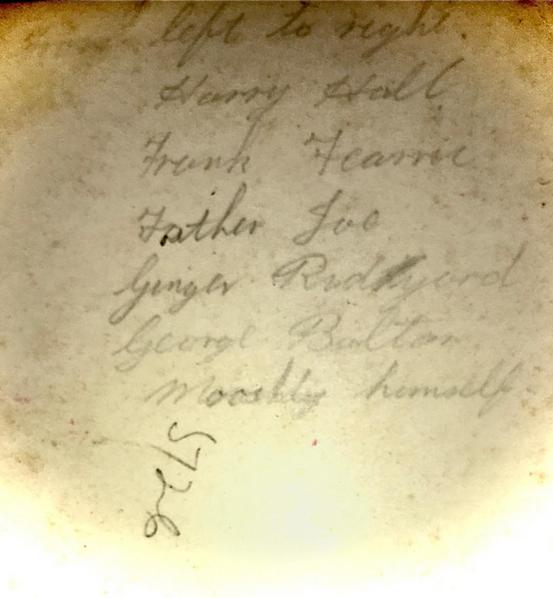 left to right.
Harry Hall
Frank Fearnie
Father Joe
Ginger Ridyard
George Boltan
himself
5/26